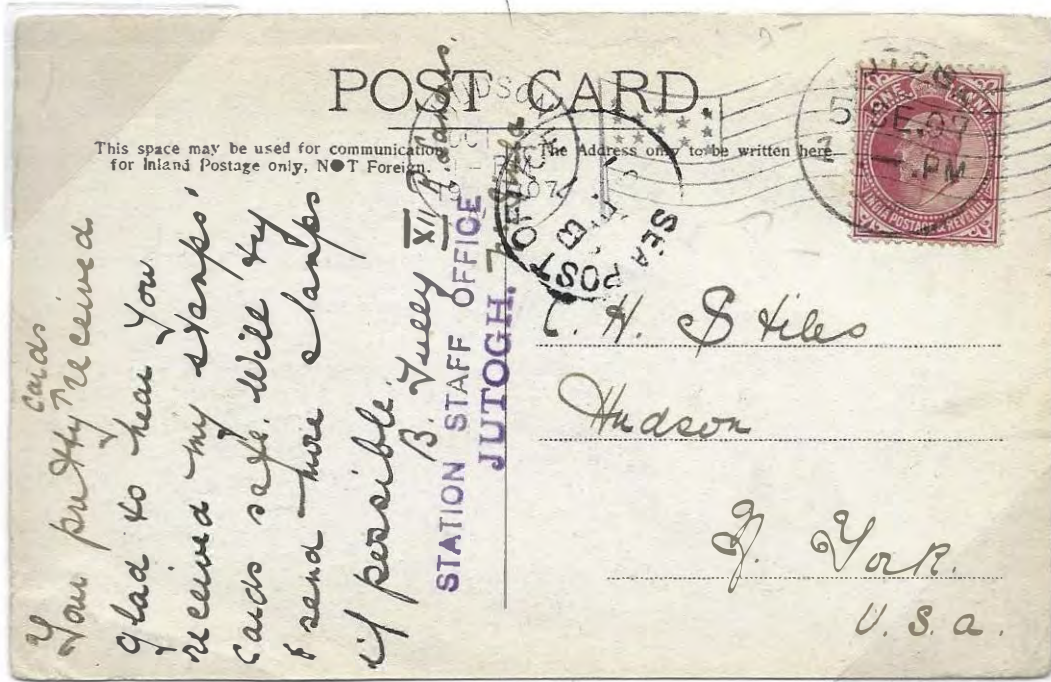 POST CARD.
This space may be used for communication
for Inland Postage only, NOT Foreign.
The Address only to be written here.
Your pretty cards received
glad to hear You
received my stamps'
cards safe. Will try
& send more stamps
if possible.
B. Tulley XII
STATION STAFF OFFICE
JUTOGH.
Simla
HUDSON
OCT
1907
SEA POST OFFICE
B
JUTOGH
5 SE.07
PM
ONE ANNA
INDIA POSTAGE & REVENUE
C. H. Stiles
Hudson
N. York.
U.S.a.